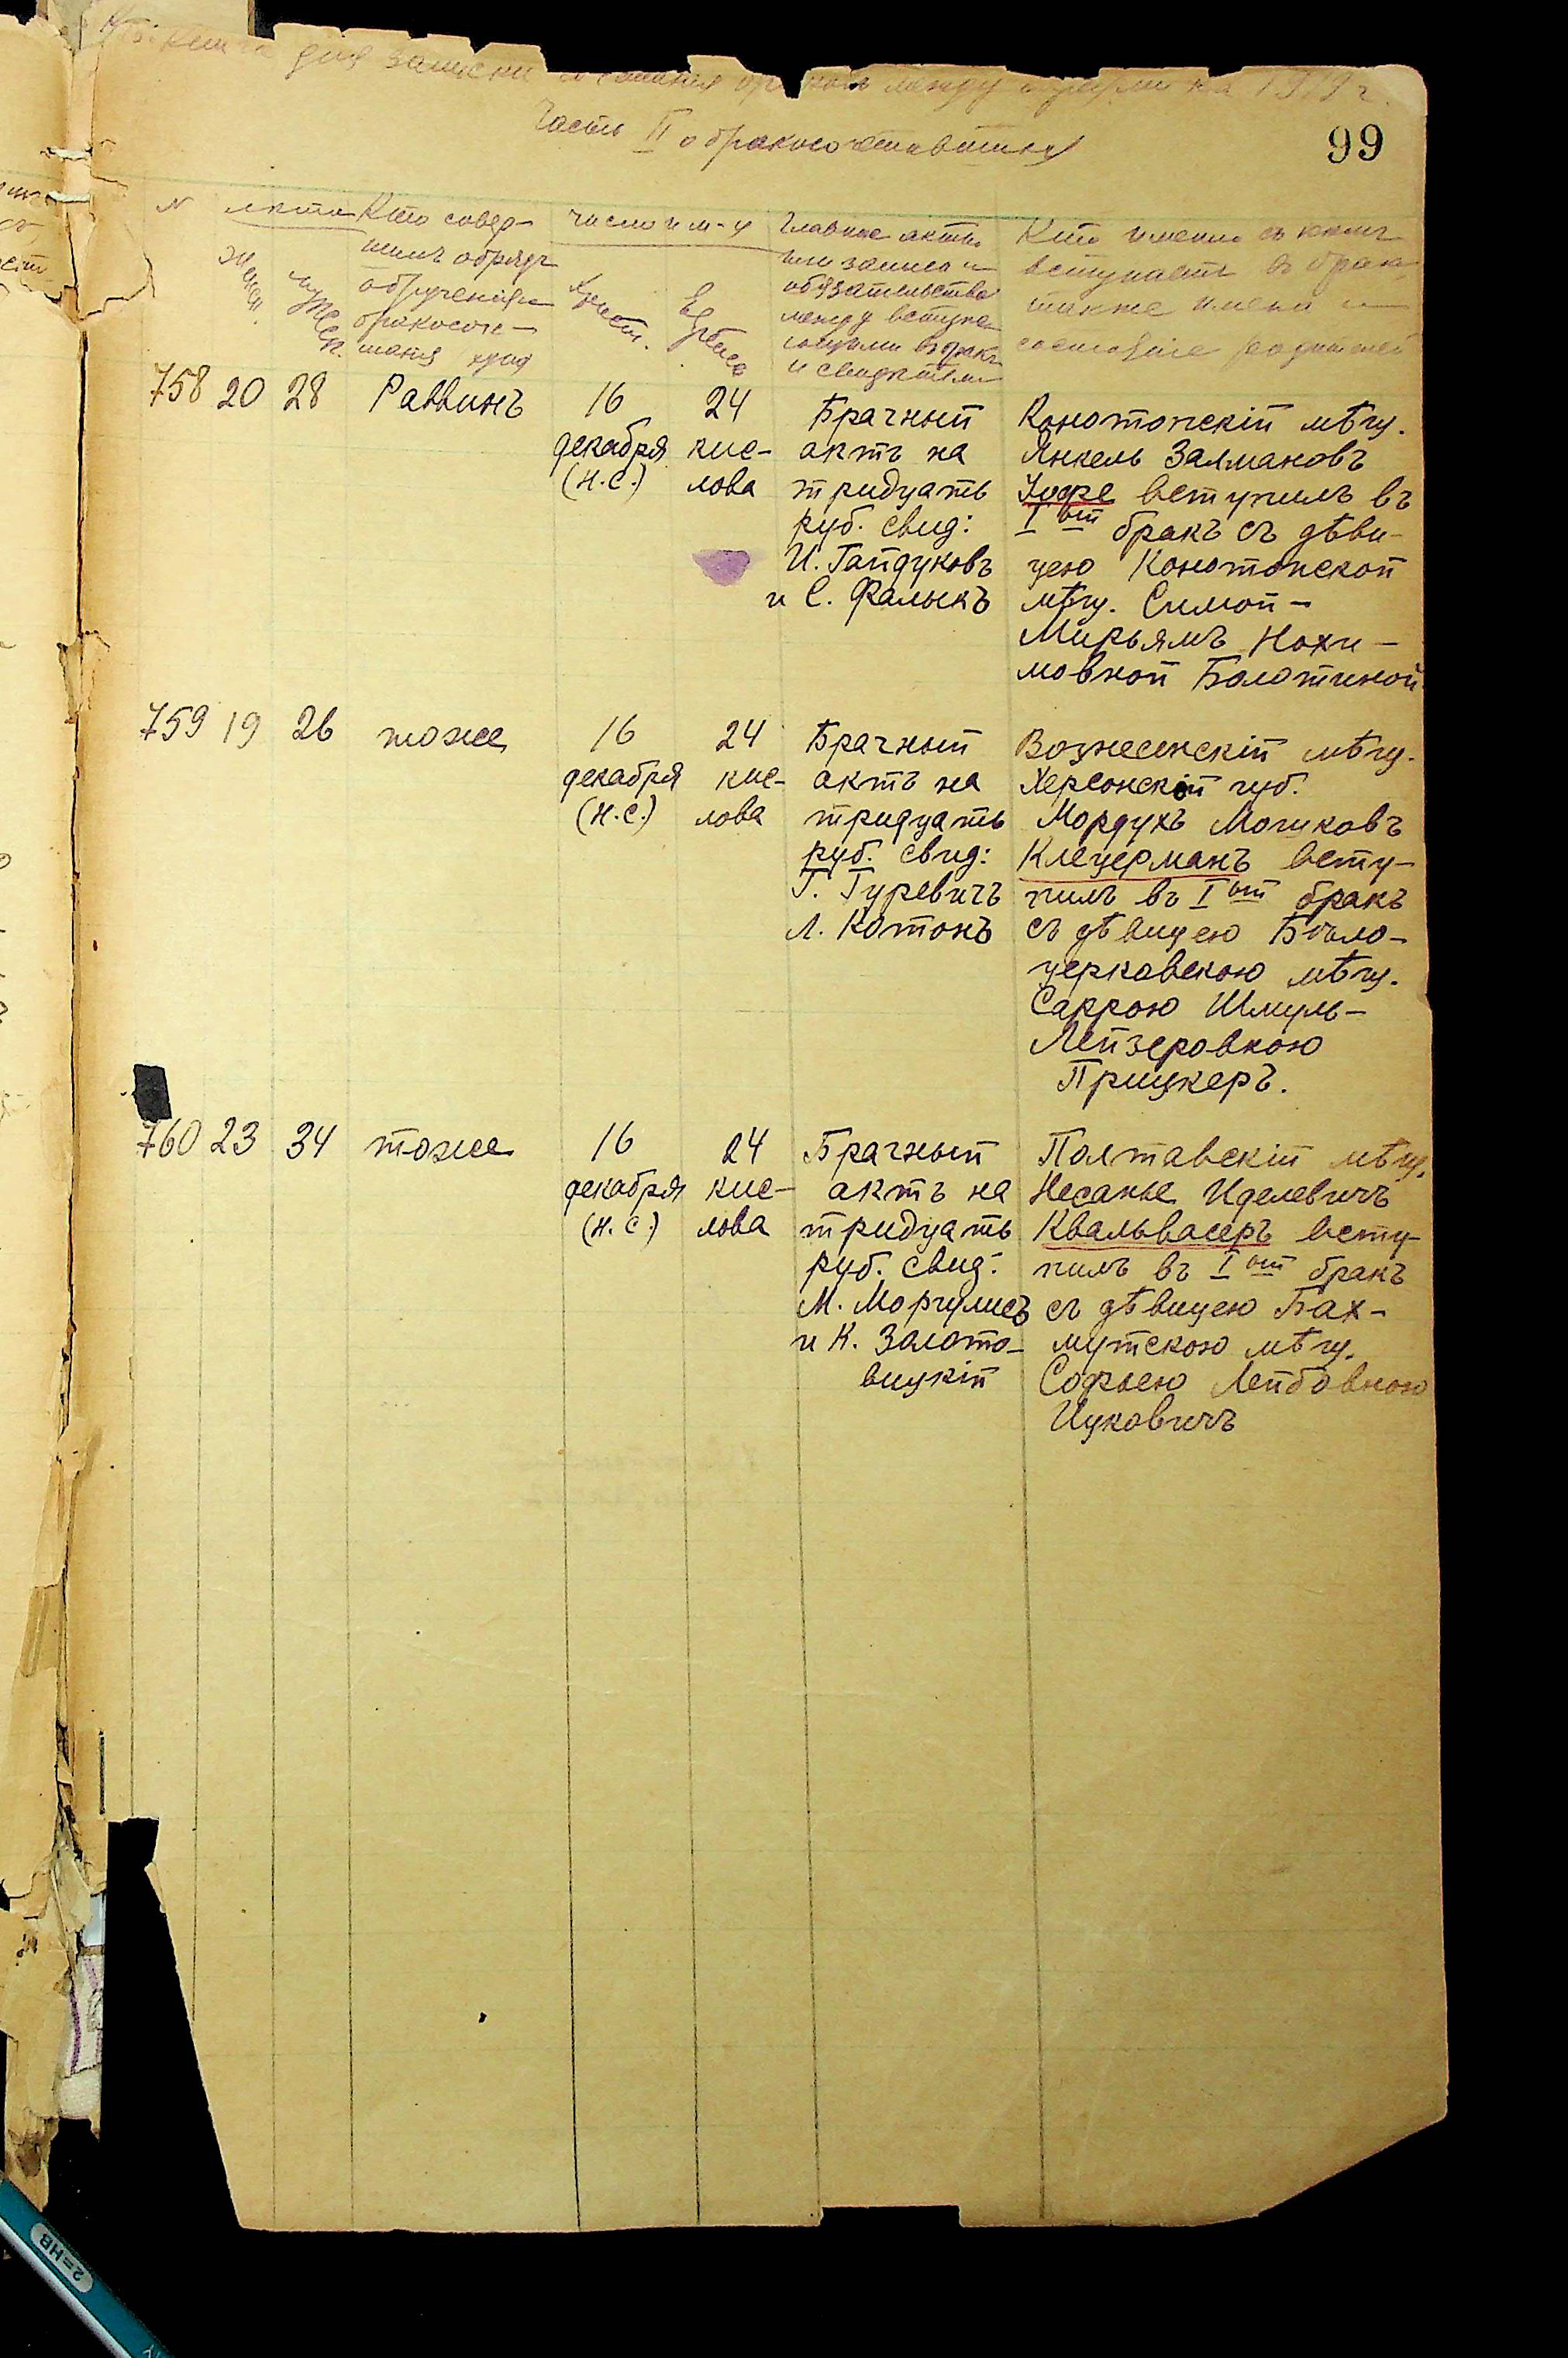 Книга для записки бракосочетанія между евреями на 1919 г.
Часть II о бракосочетавшихся
99
N лета Кто совер-
шилъ обрядъ
обрученія и
бракосоче-
танія
Женск.
Мужеск.
число и м-ц
Христ.
Еврейск.
Главные акты
или записи и
обязательства
между вступа-
ющими въ бракъ
и свидѣтели
Кто именно съ кемъ
вступаетъ въ бракъ
также имена и
состояніе родителей
758 20 28 Раввинъ
16
декабря
(н.с.)
24
кис-
лова
Брачный
актъ на
тридцать
руб. свид:
И. Гайдуковъ
и С. Фалыкъ
Конотопскій мѣщ.
Янкель Залмановъ
Іофе вступилъ въ
I ый бракъ съ дѣви-
цею Конотопской
мѣщ. Симой-
Мирьямъ Нохи-
мовной Болотиной
759 19 26 тоже
16
декабря
(н.с.)
24
кис-
лова
Брачный
актъ на
тридцать
руб. свид:
Г. Гуревичъ
Л. Котокъ
Вознесенскій мѣщ.
Херсонской губ.
Мордухъ Мошковъ
Клецерманъ всту-
пилъ въ I ый бракъ
съ дѣвицею Бѣло-
церковскою мѣщ.
Саррою Шмуль-
Лейзеровною
Прицкеръ.
760 23 34 тоже
16
декабря
(н.с.)
24
кис-
лова
Брачный
актъ на
тридцать
руб. свид:
М. Моргулисъ
и К. Золото-
вицкій
Полтавскій мѣщ.
Несанье Иделевичъ
Квальвасеръ всту-
пилъ въ I ый бракъ
съ дѣвицею Бах-
мутскою мѣщ.
Софьею Лейбовною
Ицковичъ
2=HB